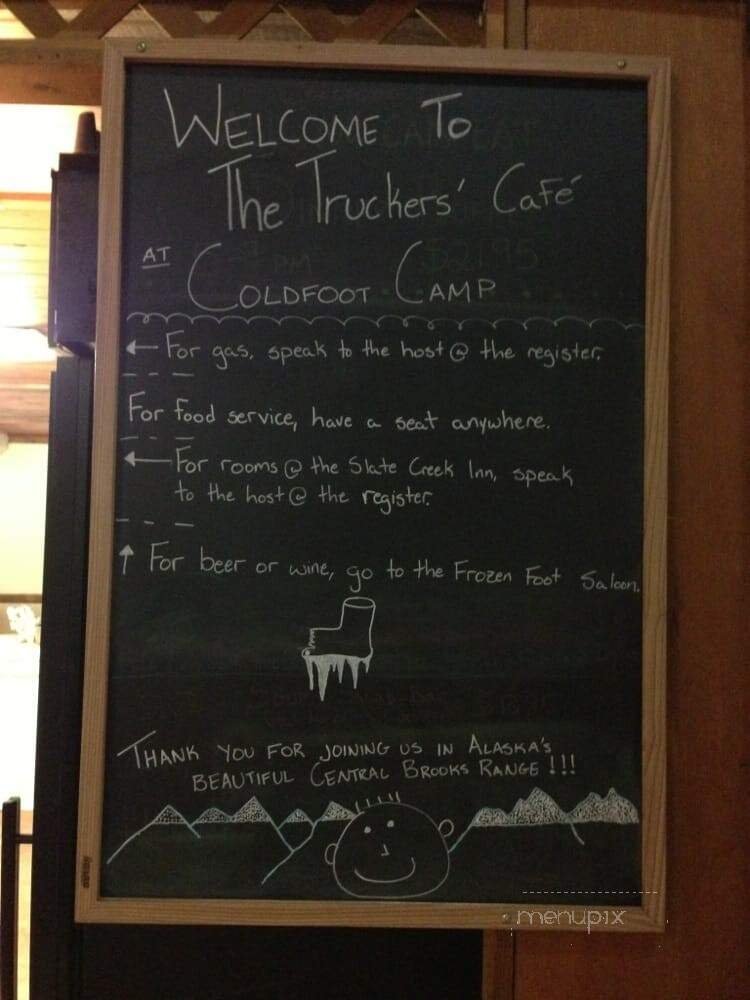 Welcome To
The Truckers' Café
AT
Coldfoot Camp
← For gas, speak to the host @ the register.
For food service, have a seat anywhere.
← For rooms @ the Slate Creek Inn, speak
to the host @ the register.
↑ For beer or wine, go to the Frozen Foot Saloon.
Thank you for joining us in Alaska's
beautiful Central Brooks Range !!!
menupix